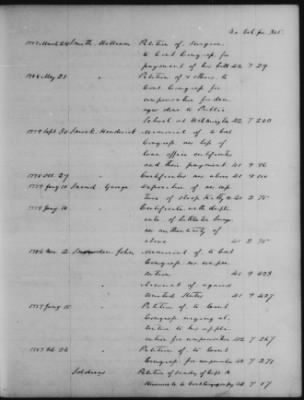 1777 March 24 Smith, William Petition of Surgeon
to Cont. Congress, for
payment of his bill 42 7 29
1786 May 23 " Petition of & others to
Cont. Congress for
compensation for dam-
ages done to Public
School at Wilmington 42 7 260
1779 Sept 30 Smock, Hendrick Memorial of to Cont
Congress on loss of
loan office certificates
and their payment 41 9 96
1778 Oct. 27 " Certificates as above 41 9 100
1779 Jany 10 Snead, George Deposition of on cap-
ture of sloop 42 2 75
1779 Jany 10 " Certificate with dupli-
cate of
on authenticity of
above 42 2 75
1786 Nov. 2 Snowden John Memorial of to Cont
Congress on compen-
sation 41 9 433
" Memorial of against
United States 41 9 437
1787 Jany 15 " Petition of to Cont
Congress urging at-
tention to his appli-
cation for compensation 42 7 267
1787 Feb 26 " Petition of to Cont
Congress for compensation 42 7 271
Soldiers Petition of to
to Cont Congress 42 7 17